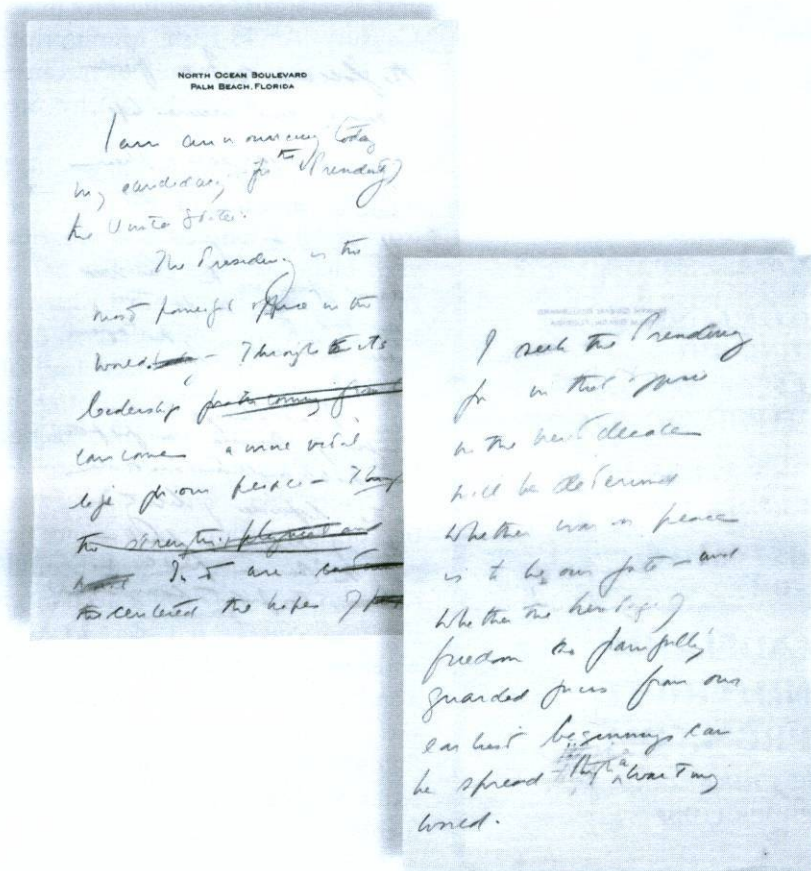 NORTH OCEAN BOULEVARD
PALM BEACH, FLORIDA
I am announcing today
my candidacy for the Presidency of
the United States.
The Presidency is the
most powerful office in the
world. – Through its
leadership
can come a more vital
life for our people –
the strengthy physical and
In it are
centered the hopes of
I seek the Presidency
for in that office
in the next decade
will be determined
whether war or peace
is to be our fate – and
whether the heritage of
freedom so painfully
guarded from our
earliest beginnings can
be spread a waiting
world.